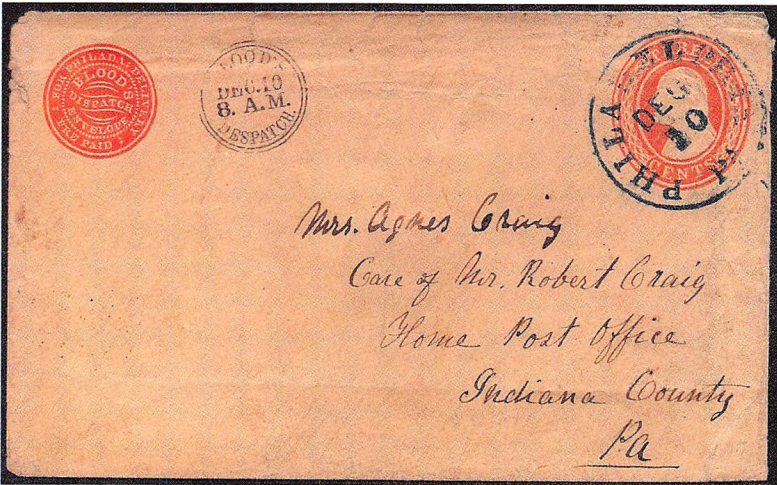 FOR PHILADA. DELIVERY
BLOOD'S
DISPATCH
ENVELOPE
PRE PAID
BLOOD'S
DEC. 10
8. A.M.
DESPATCH.
PHILADELPHIA
DEC
10
CENTS
Mrs. Agnes Craig
Care of Mr. Robert Craig
Home Post Office
Indiana County
Pa